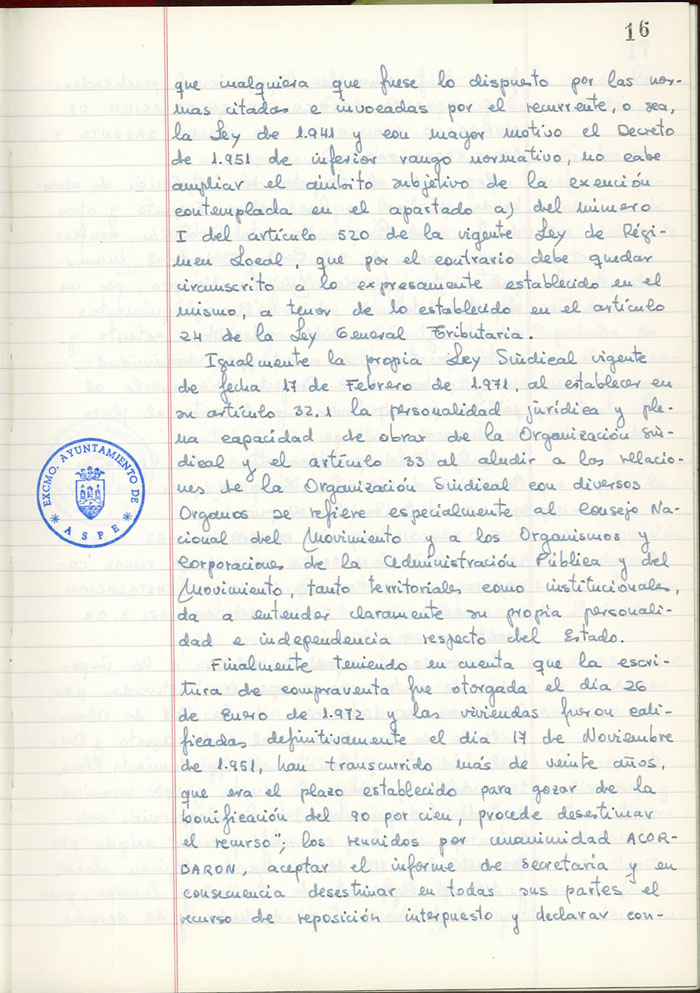 16
que cualquiera que fuese lo dispuesto por las nor-
mas citadas e invocadas por el recurrente, o sea,
la Ley de 1.941 y con mayor motivo el Decreto
de 1.951 de inferior rango normativo, no cabe
ampliar el ámbito subjetivo de la exención
contemplada en el apartado a) del número
I del artículo 520 de la vigente Ley de Régi-
men Local, que por el contrario debe quedar
circunscrito a lo expresamente establecido en el
mismo, a tenor de lo establecido en el artículo
24 de la Ley General Tributaria.
Igualmente la propia Ley Sindical vigente
de fecha 17 de Febrero de 1.971, al establecer en
su artículo 32.1 la personalidad jurídica y ple-
na capacidad de obrar de la Organización Sin-
dical y el artículo 33 al aludir a las relacio-
nes de la Organización Sindical con diversos
Organos se refiere especialmente al Consejo Na-
cional del Movimiento y a los Organismos y
Corporaciones de la Administración Pública y del
Movimiento, tanto territoriales como institucionales,
da a entender claramente su propia personali-
dad e independencia respecto del Estado.
Finalmente teniendo en cuenta que la escri-
tura de compraventa fue otorgada el día 26
de Enero de 1.972 y las viviendas fueron cali-
ficadas definitivamente el día 17 de Noviembre
de 1.951, han transcurrido más de veinte años,
que era el plazo establecido para gozar de la
bonificación del 90 por cien, procede desestimar
el recurso"; los reunidos por unanimidad ACOR-
DARON, aceptar el informe de Secretaria y en
consecuencia desestimar en todas sus partes el
recurso de reposición interpuesto y declarar con-
EXCMO. AYUNTAMIENTO DE
* ASPE *